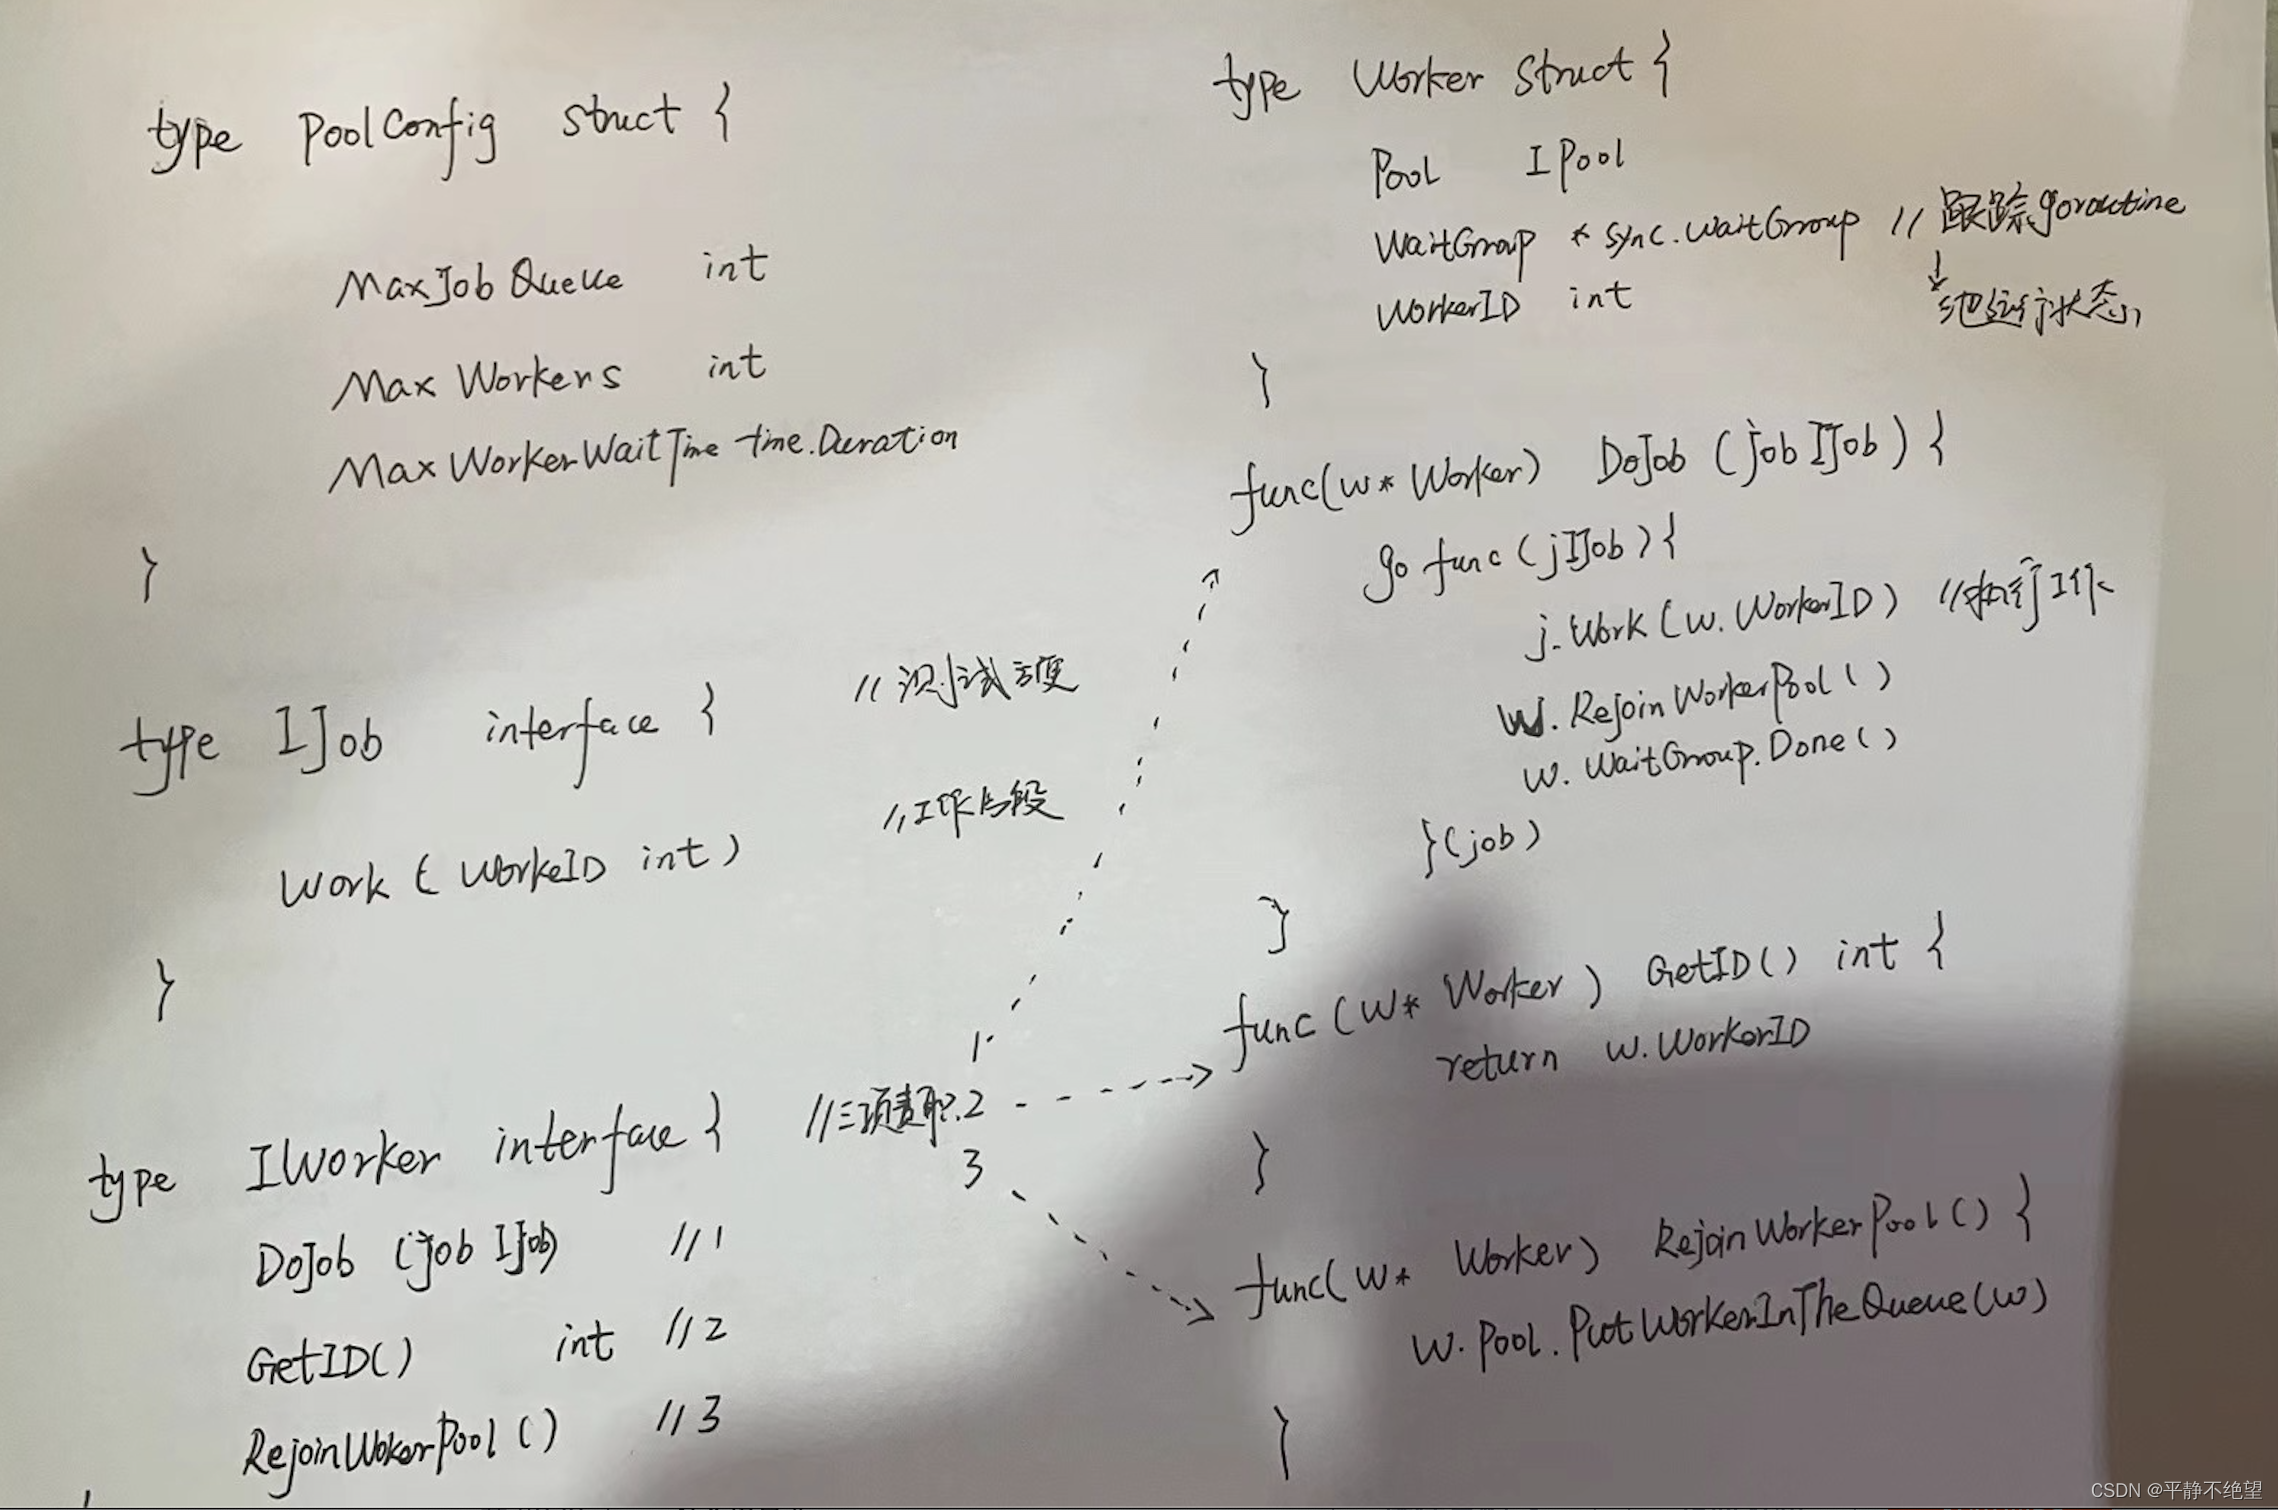 type PoolConfig struct {
MaxJobQueue int
Max Workers int
MaxWorkerWaitTime time.Duration
}
type IJob interface { // 测试方便
Work ( WorkeID int ) // 工作片段
}
type IWorker interface { // 三项责职.
1.
2
3
DoJob (job IJob) // 1
GetID() int // 2
RejoinWokerPool () // 3
type Worker struct {
Pool IPool
WaitGroup * sync.WaitGroup // 跟踪goroutine
↓
池运行状态
WorkerID int
}
func(w* Worker) DoJob (job IJob) {
go func (j IJob) {
j.Work (w. WorkerID) // 执行工作
w. RejoinWorkerPool ()
w. WaitGroup. Done ()
}(job)
}
func (w* Worker ) GetID() int {
return w. WorkerID
}
func(w* Worker) RejoinWorkerPool () {
w. Pool. PutWorkerInTheQueue(w)
}
CSDN @平静不绝望